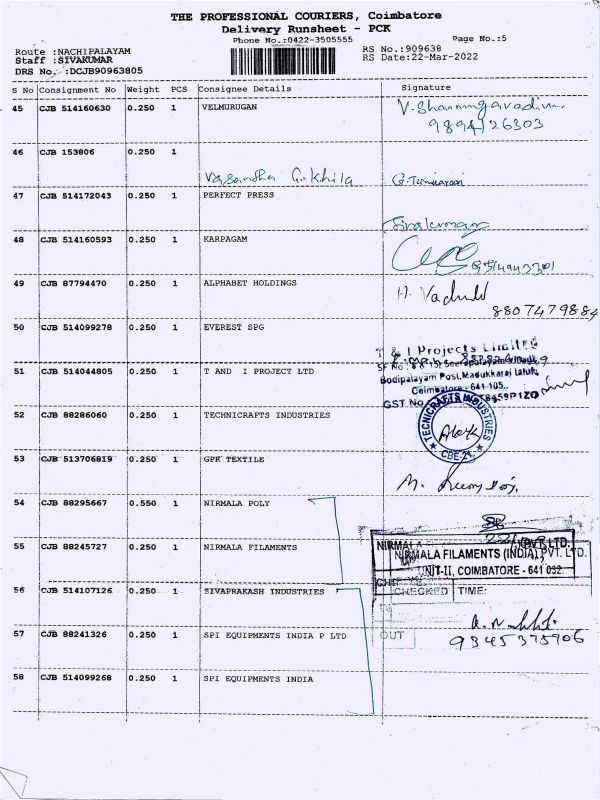 THE PROFESSIONAL COURIERS, Coimbatore
Delivery Runsheet - PCK
Phone No.:0422-3505555
Page No.:5
Route :NACHIPALAYAM
RS No.:909638
Staff :SIVAKUMAR
RS Date:22-Mar-2022
DRS No. :DCJB90963805
S No Consignment No Weight PCS Consignee Details Signature
45 CJB 514160630 0.250 1 VELMURUGAN
9894126303
46 CJB 153806 0.250 1
47 CJB 514172043 0.250 1 PERFECT PRESS
48 CJB 514160593 0.250 1 KARPAGAM
49 CJB 87794470 0.250 1 ALPHABET HOLDINGS
8807479884
50 CJB 514099278 0.250 1 EVEREST SPG
T & I Projects Limited
51 CJB 514044805 0.250 1 T AND I PROJECT LTD
Bodipalayam Post, Madukkarai Taluk,
Coimbatore - 641 105.
GST No
52 CJB 88286060 0.250 1 TECHNICRAFTS INDUSTRIES
TECNICRAFTS INDUSTRIES
CBE-21
53 CJB 513706819 0.250 1 GPK TEXTILE
54 CJB 88295667 0.550 1 NIRMALA POLY
NIRMALA (P) LTD.
55 CJB 88245727 0.250 1 NIRMALA FILAMENTS
NIRMALA FILAMENTS (INDIA) PVT. LTD.
UNIT-II, COIMBATORE - 641 032.
56 CJB 514107126 0.250 1 SIVAPRAKASH INDUSTRIES
CHECKED TIME:
IN
57 CJB 88241326 0.250 1 SPI EQUIPMENTS INDIA P LTD
OUT
9345375906
58 CJB 514099268 0.250 1 SPI EQUIPMENTS INDIA